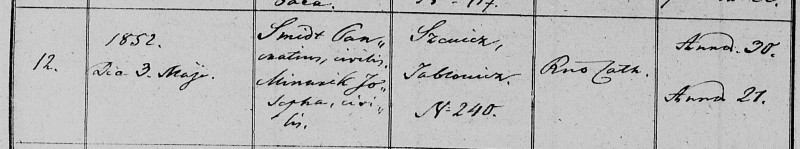 12.
1852.
Die 3. Maji.
Smidt Pan„
cratius, civilis.
Minarik Jo„
sepha, civi„
lis.
Szenicz,
Jablonicz.
N. 240.
Rno Cath.
Annor. 30.
Annor. 21.